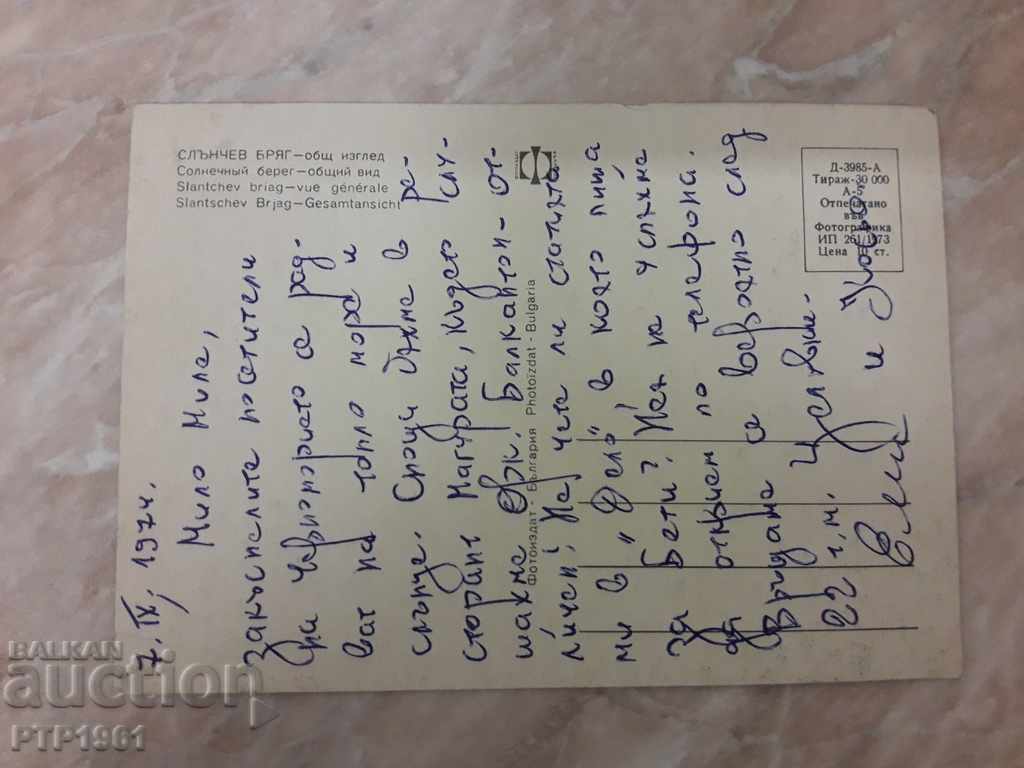 СЛЪНЧЕВ БРЯГ—общ изглед
Солнечный берег—общий вид
Slantchev briag—vue générale
Slantschev Brjag—Gesamtansicht
Д-3985-А
Тираж-30 000
А-5
Отпечатано
във
Фотографика
ИП 261/1973
Цена ст.
Фотоиздат - България Photoizdat - Bulgaria
7. IX. 1974.
Мило Миле,
Закъснелите посетители
на Черноморието се рад-
ват на топло море и
слънце. Снощи бяхме в ре-
сторант Магурата, където слу-
шахме орк. Балкантон - от-
личен! Не чете ли статията
ми в "Дело" в която пиша
за Бети? Не на успяхме
да открием по телефона.
Връщане е вероятно след
22 т.м. Целувки.
и
BALKAN
auction
PTP1961